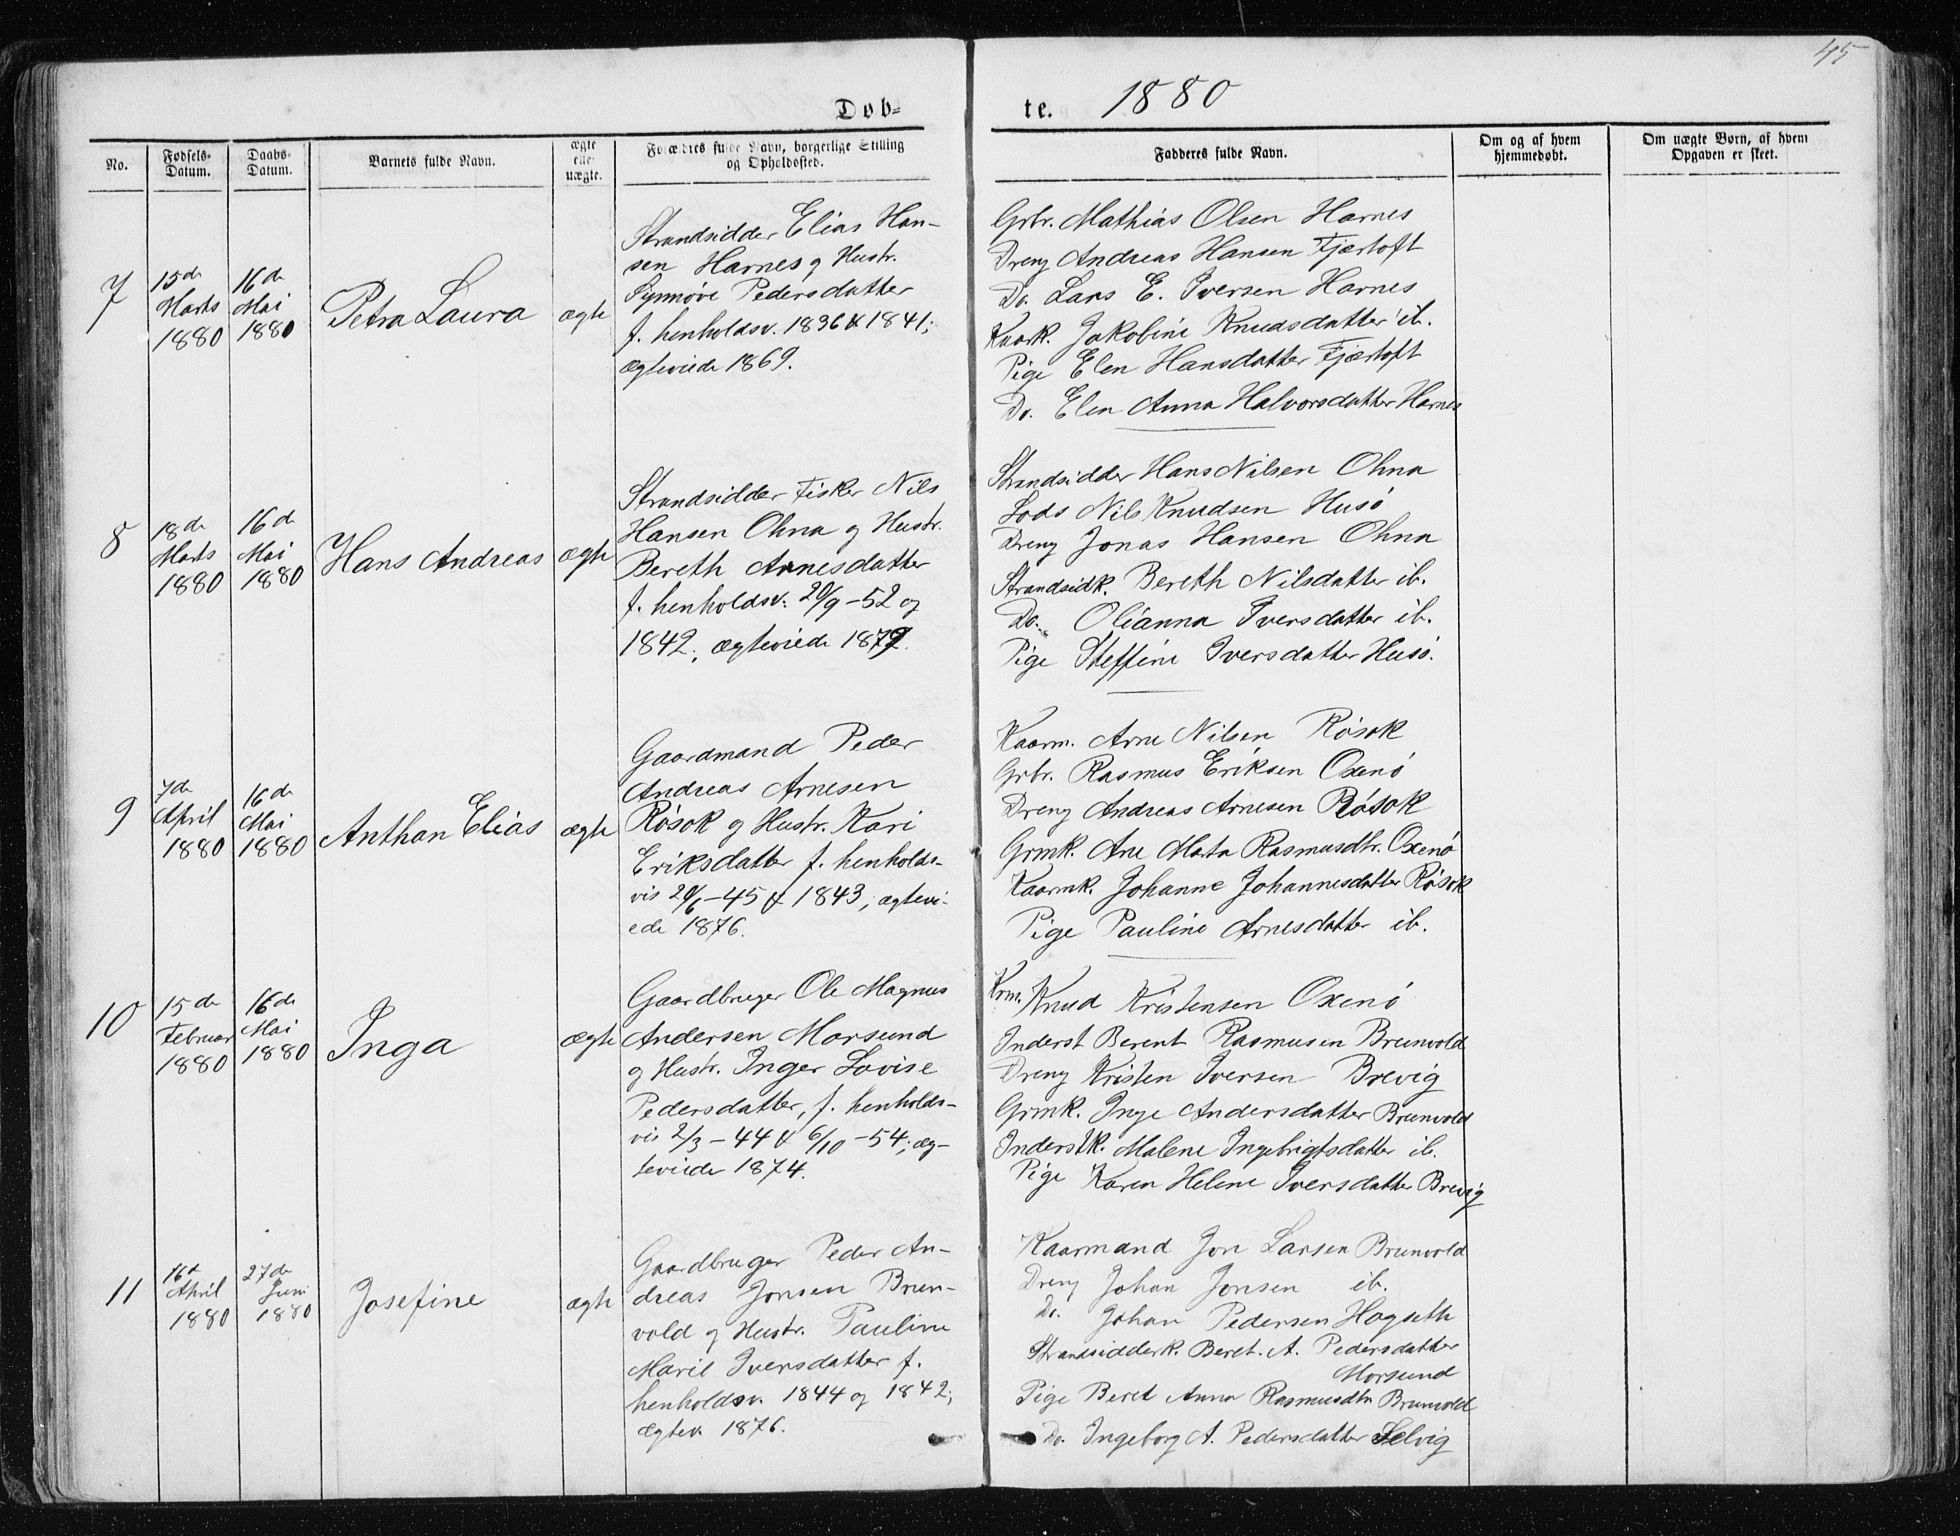 45
Døb-
te. 1880
No.
Fødsels-
Datum.
Daabs-
Datum.
Barnets fulde Navn.
ægte
eller
uægte.
Forældres fulde Navn, borgerlige Stilling
og Opholdssted.
Fadderes fulde Navn.
Om og af hvem
hjemmedøbt.
Om uægte Børn, af hvem
Opgaven er skeet.
7
15de
Marts
1880
16de
Mai
1880
Petra Laura
ægte
Strandsidder Elias Han-
sen Harnes og Hustr.
Synnøve Pedersdatter
f. henholdsv. 1836 & 1841;
ægteviede 1869.
Grbr. Mathias Olsen Harnes
Dreng Andreas Hansen Fjærtoft
Do. Lars E. Iversen Harnes
Kaark. Jakobine Knudsdatter ib.
Pige Elen Hansdatter Fjærtoft
Do. Elen Anna Halvorsdatter Harnes
8
18de
Marts
1880
16de
Mai
1880
Hans Andreas
ægte
Strandsidder Fisker Nils
Hansen Ohna og Hustr.
Bereth Arnesdatter
f. henholdsv. 20/9-52 og
1842; ægteviede 1879.
Strandsidder Hans Nilsen Ohna
Lods Nils Knudsen Husø
Dreng Jonas Hansen Ohna
Strandsidk. Bereth Nilsdatter ib.
Do. Olianna Iversdatter ib.
Pige Steffine Iversdatter Husø.
9
7de
April
1880
16de
Mai
1880
Anthon Elias
ægte
Gaardmand Peder
Andreas Arnesen
Røsok og Hustr. Kari
Eriksdatter f. henholds-
vis 20/6-45 & 1843; ægtevi-
ede 1876.
Kaarm. Arne Nilsen Røsok
Grbr. Rasmus Eriksen Oxenø
Dreng Andreas Arnesen Røsok
Grmk. Ane Marta Rasmusdtr. Oxenø
Kaarmk. Johanne Johannesdatter Røsok
Pige Pauline Arnesdatter ib.
10
15de
Februar
1880
16de
Mai
1880
Inga
ægte
Gaardbruger Ole Magnus
Andersen Morsund
og Hustr. Inger Lovise
Pedersdatter, f. henholds-
vis 2/3-44 & 6/10-54; æg-
teviede 1874.
Krm. Knud Kristensen Oxenø
Inderst Berent Rasmusen Brunvold
Dreng Kristen Iversen Brevig
Grmk. Inge Andersdatter Brunvold
Inderstk. Malene Ingebrigtsdatter ib.
Pige Karen Helene Iversdatter Brevig
11
16de
April
1880
27de
Juni
1880
Josefine
ægte
Gaardbruger Peder An-
dreas Jonsen Brun-
vold og Hustr. Pauline
Marie Iversdatter f.
henholdsv. 1844 og 1842;
ægtev. 1876.
Kaarmand Jon Larsen Brunvold
Dreng Johan Jonsen ib.
Do. Johan Pedersen Hagseth
Strandsidderk. Beret. A. Pedersdatter
Morsund
Pige Beret Anna Rasmusdtr Brunvold
Do. Ingeborg A. Pedersdatter Selvig